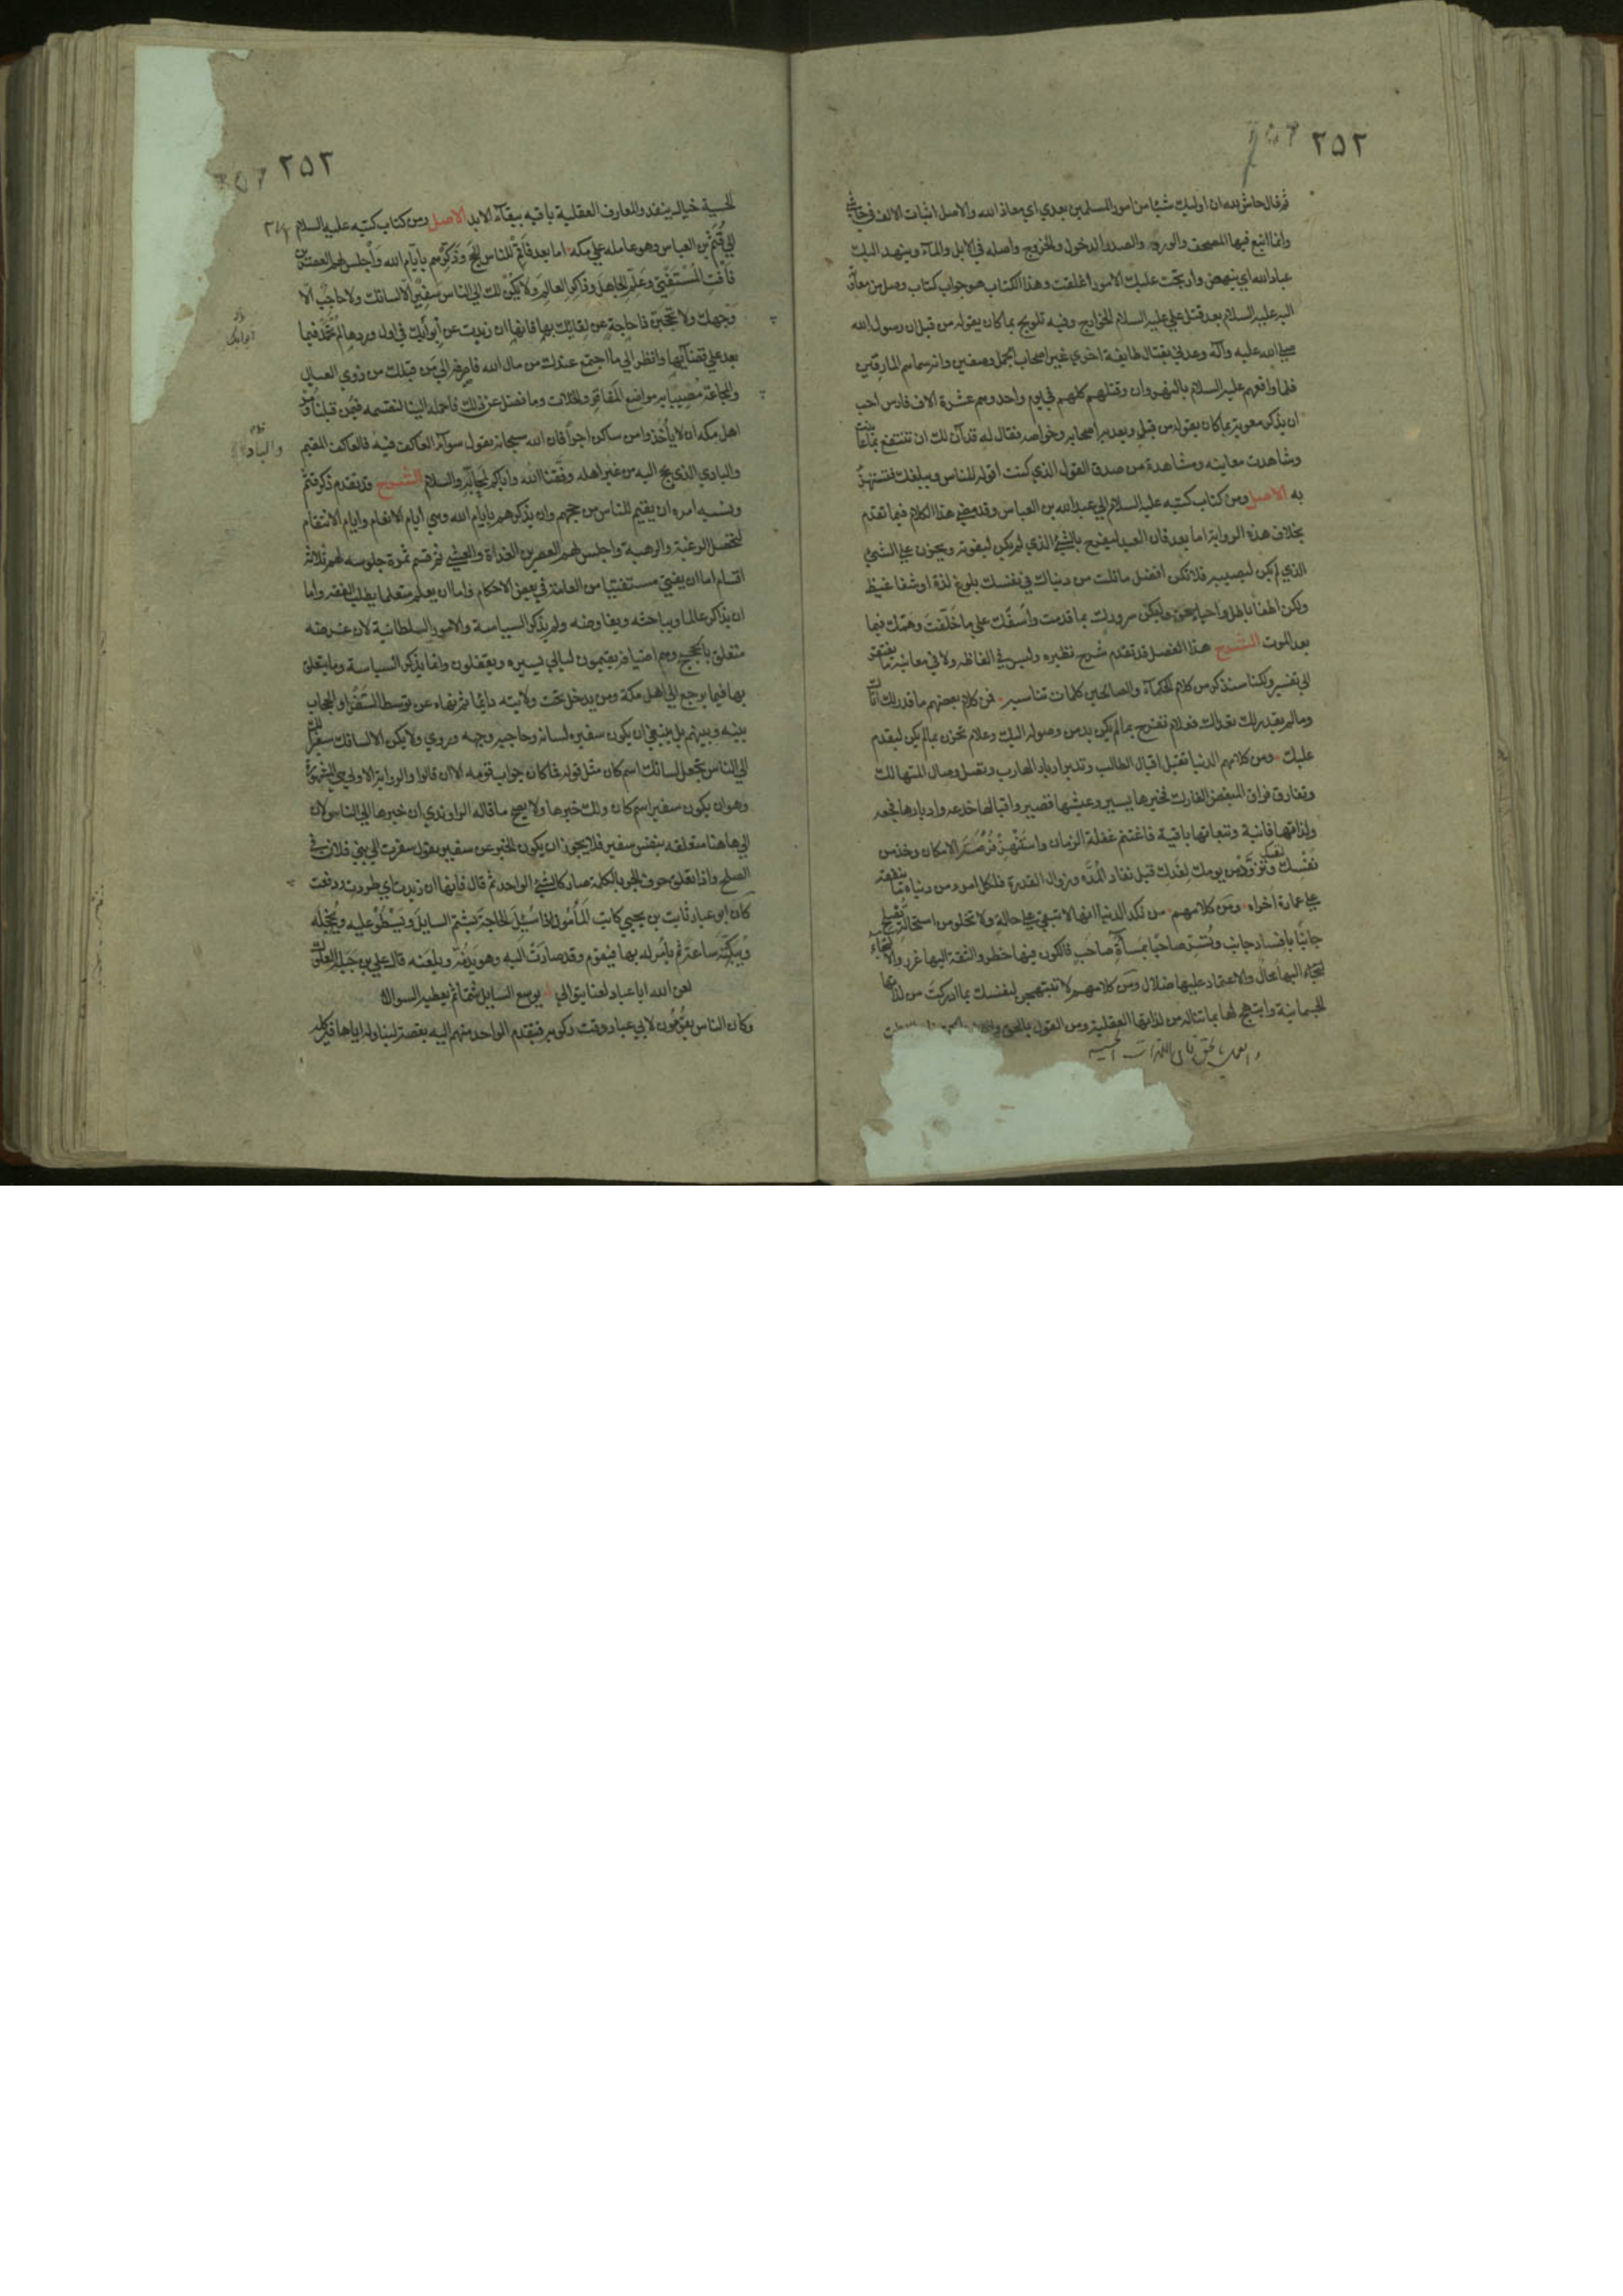 ٢٥٢
ثم قال حاش لله ان اوليك شيئا من امور المسلمين بعدي اي معاذ الله والاصل اثبات الالف في حاشى
وانما اتبع فيها المصحف والورد والصدر الدخول والخروج واصله في الابل والمآء وينهد اليك
عباد الله اي ينهض وارتجت عليك الامور اغلقت وهذا الكتاب هو جواب كتاب وصل من معاوية
اليه عليه السلام بعد قتل علي عليه السلام الخوارج وفيه تلويح بما كان يقوله من قبل ان رسول الله
صلى الله عليه وآله وعدني بقتال طايفة اخري غير اصحاب الجمل وصفين وانه سماهم المارقين
فلما واقعهم عليه السلام بالنهروان وقتلهم كلهم في يوم واحد وهم عشرة الاف فارس احب
ان يذكر معوية بما كان يقوله من قبل ويعد به اصحابه وخواصه فقال له قد آن لك ان تنتفع بما عاينت
وشاهدت معاينه ومشاهدة من صدق القول الذي كنت اقوله للناس ويبلغك فتستهزئ
به الاصل ومن كتاب كتبه عليه السلام الي عبد الله بن العباس وقد مضي هذا الكلام فيما تقدم
بخلاف هذه الرواية اما بعد فان العبد ليفرح بالشئ الذي لم يكن ليفوته ويحزن علي الشئ
الذي لم يكن ليصيبه فلا تكن افضل ما نلت من دنياك في نفسك بلوغ لذة او شفا غيظ
ولكن اطفا باطل واحيا حق وليكن سرورك بما قدمت واسفك علي ما خلفت وهمك فيما
بعد الموت الشرح هذا الفصل قد تقدم شرح نظيره وليس في الفاظه ولا في معانيه ما يفتقر
الي تفسير ولكنا سنذكر من كلام الحكمآء والصالحين كلمات تناسبه فمن كلام بعضهم ما قدر لك اتاك
وما لم يقدر لك تعداك فعلام تفرح بما لم يكن بد من وصوله اليك وعلام تحزن بما لم يكن ليقدم
عليك ومن كلامهم الدنيا تقبل اقبال الطالب وتدبر ادبار الهارب وتصل وصال المتهالك
وتفارق فراق المبغض الفارك فخيرها يسير وعيشها قصير واقبالها خدعه وادبارها فجعه
ولذاتها فانية وتبعاتها باقية فاغتنم غفلة الزمان وانتهز فرصة الامكان وخذ من
نفسك لنفسك وتزود من يومك لغدك قبل نفاد المدة وزوال القدرة فلكل امرء من دنياه ما ينفعه
علي عمارة اخراه ومن كلامهم من نكد الدنيا انها لا تبقي علي حالة ولا تخلو من استحالة تصلح
جانبا بافساد جانب وتسر صاحبا بمساءة صاحب فالكون فيها خطر والثقة اليها غرر والالتجاء
اليها محال والاعتماد عليها ضلال ومن كلامهم لا تبتهجن لنفسك بما ادركت من لذاتها
الجسمانية وابتهج لها بما تناله من لذاتها العقلية ومن القول بالحق
والعمل بالحق فان اللذات الحسيه
٢٥٢
الحسية خيال ينفد والمعارف العقلية باقيه ببقآء الابد الاصل ومن كتاب كتبه عليه السلام
الي قثم بن العباس وهو عامله علي مكة اما بعد فاقم للناس الحج وذكرهم بايام الله واجلس لهم العصرين
فافت المستفتي وعلم الجاهل وذاكر العالم ولا يكن لك الي الناس سفير الا لسانك ولا حاجب الا
وجهك ولا تحجبن ذا حاجة عن لقائك بها فانها ان زيدت عن ابوابك في اول وردها لم تحمد فيما
بعد علي قضآيها وانظر الي ما اجتمع عندك من مال الله فاصرفه الي من قبلك من ذوي العيال
والمجاعة مصيبا به مواضع المفاقر والخلات وما فضل عن ذلك فاحمله الينا لنقسمه فيمن قبلنا ومر
اهل مكه ان لا يأخذوا من ساكن اجرا فان الله سبحانه يقول سوآء العاكف فيه فالعاكف المقيم
والباد
والبادي الذي يحج اليه من غير اهله وفقنا الله واياكم لمحابه والسلام الشرح قد تقدم ذكر قثم
ونسبه امره ان يقيم للناس حجهم وان يذكرهم بايام الله وهي ايام الانعام وايام الانتقام
لتحصل الرغبة والرهبة واجلس لهم العصرين الغداة والعشي ثم قسم ثمرة جلوسه لهم ثلاثة
اقسام اما ان يفتي مستفتيا من العامة في بعض الاحكام واما ان يعلم متعلما يطلب الفقه واما
ان يذاكر عالما ويباحثه ويفاوضه ولم يذكر السياسة والامور السلطانية لان غرضه
متعلق بالحجيج وهم اضيافه يقيمون ليالي يسيره ويقفلون وانما يذكر السياسة وما يتعلق
بها فيما يرجع الي اهل مكة ومن يدخل تحت ولايته دايما ثم نهاه عن توسط السفرا والحجاب
بينه وبينهم بل ينبغي ان يكون سفيره لسانه وحاجبه وجهه وروي ولا يكن الا لسانك سفيرا لك
الي الناس بجعل لسانك اسم كان مثل قوله فما كان جواب قومه الا ان قالوا والرواية الاولي هي المشهورة
وهو ان يكون سفيرا اسم كان ولك خبرها ولا يصح ما قاله الراوندي ان خبرها الي الناس لان
الي هاهنا متعلقه بنفس سفير فلا يجوز ان يكون الخبر عن سفير يقول سفرت الي بني فلان في
الصلح واذا تعلق حرف الجر بالكلمة صار كالشئ الواحد ثم قال فانها ان زيدت اي طردت ودفعت
كان ابو عباد ثابت بن يحيي كاتب المأمون اذا سئل الحاجة يشتم السايل ويسطو عليه ويخجله
ويبكته ساعة ثم يأمر له بها فيقوم وقد صارت اليه وهو يذمه ويلعنه قال علي بن جبلة العكوك
لعن الله ابا عباد لعنا يتوالي يوسع السايل شتما ثم يعطيه السوالا
وكان الناس يقفون لابي عباد وقت ركوبه فيتقدم الواحد منهم اليه بقصة ليناوله اياها فيركله